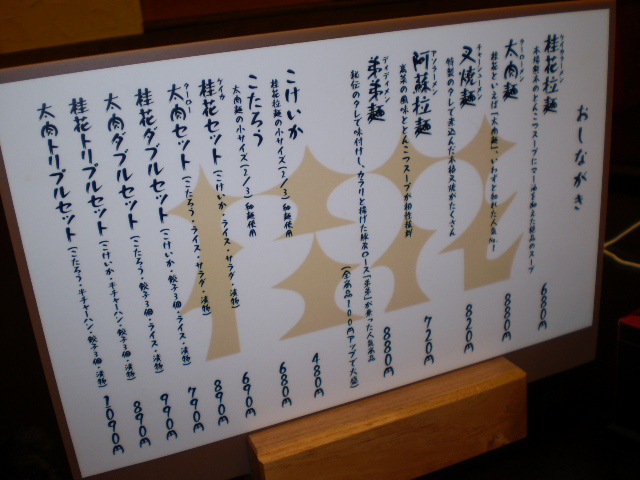 おしながき
ケイカラーメン
桂花拉麺
本場熊本のとんこつスープにマー油を加えた極品のスープ
680円
ターローメン
太肉麺
桂花といえば「太肉麺」、いわずと知れた人気No.1
880円
チャーシューメン
叉焼麺
特製のタレで煮込んだ本格叉焼がたくさん
820円
アソラーメン
阿蘇拉麺
高菜の風味ととんこつスープが相性抜群
720円
ディディメン
弟弟麺
秘伝のタレで味付けし、カラリと揚げた豚肩ロース「弟弟」が乗った人気商品
880円
(全商品100円アップで大盛)
こけいか
桂花拉麺の小サイズ(2/3)細麺使用
480円
こたろう
太肉麺の小サイズ(2/3)細麺使用
680円
ケイカ
桂花セット(こけいか・ライス・サラダ・漬物)
690円
ターロー
太肉セット(こたろう・ライス・サラダ・漬物)
890円
桂花ダブルセット(こけいか・餃子3個・ライス・漬物)
790円
太肉ダブルセット(こたろう・餃子3個・ライス・漬物)
990円
桂花トリプルセット(こけいか・半チャーハン・餃子3個・漬物)
890円
太肉トリプルセット(こたろう・半チャーハン・餃子3個・漬物)
1090円